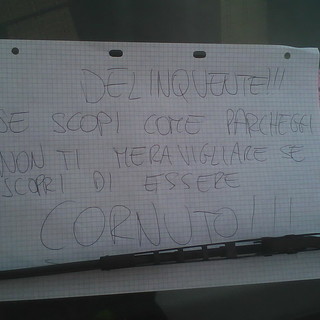 DELINQUENTE!!!
SE SCOPI COME PARCHEGGI
NON TI MERAVIGLIARE SE
SCOPRI DI ESSERE
CORNUTO!!!